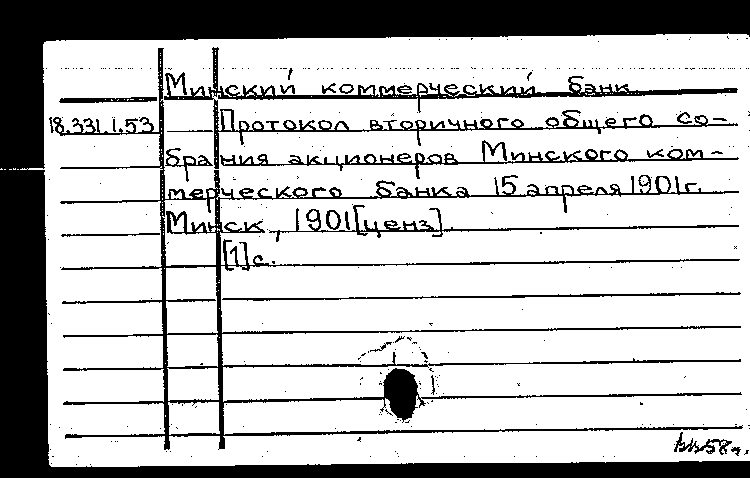 Минский коммерческий банк
18.331.1.53 Протокол вторичного общего со-
брания акционеров Минского ком-
мерческого банка 15 апреля 1901г.
Минск, 1901[ценз].
[1]с.